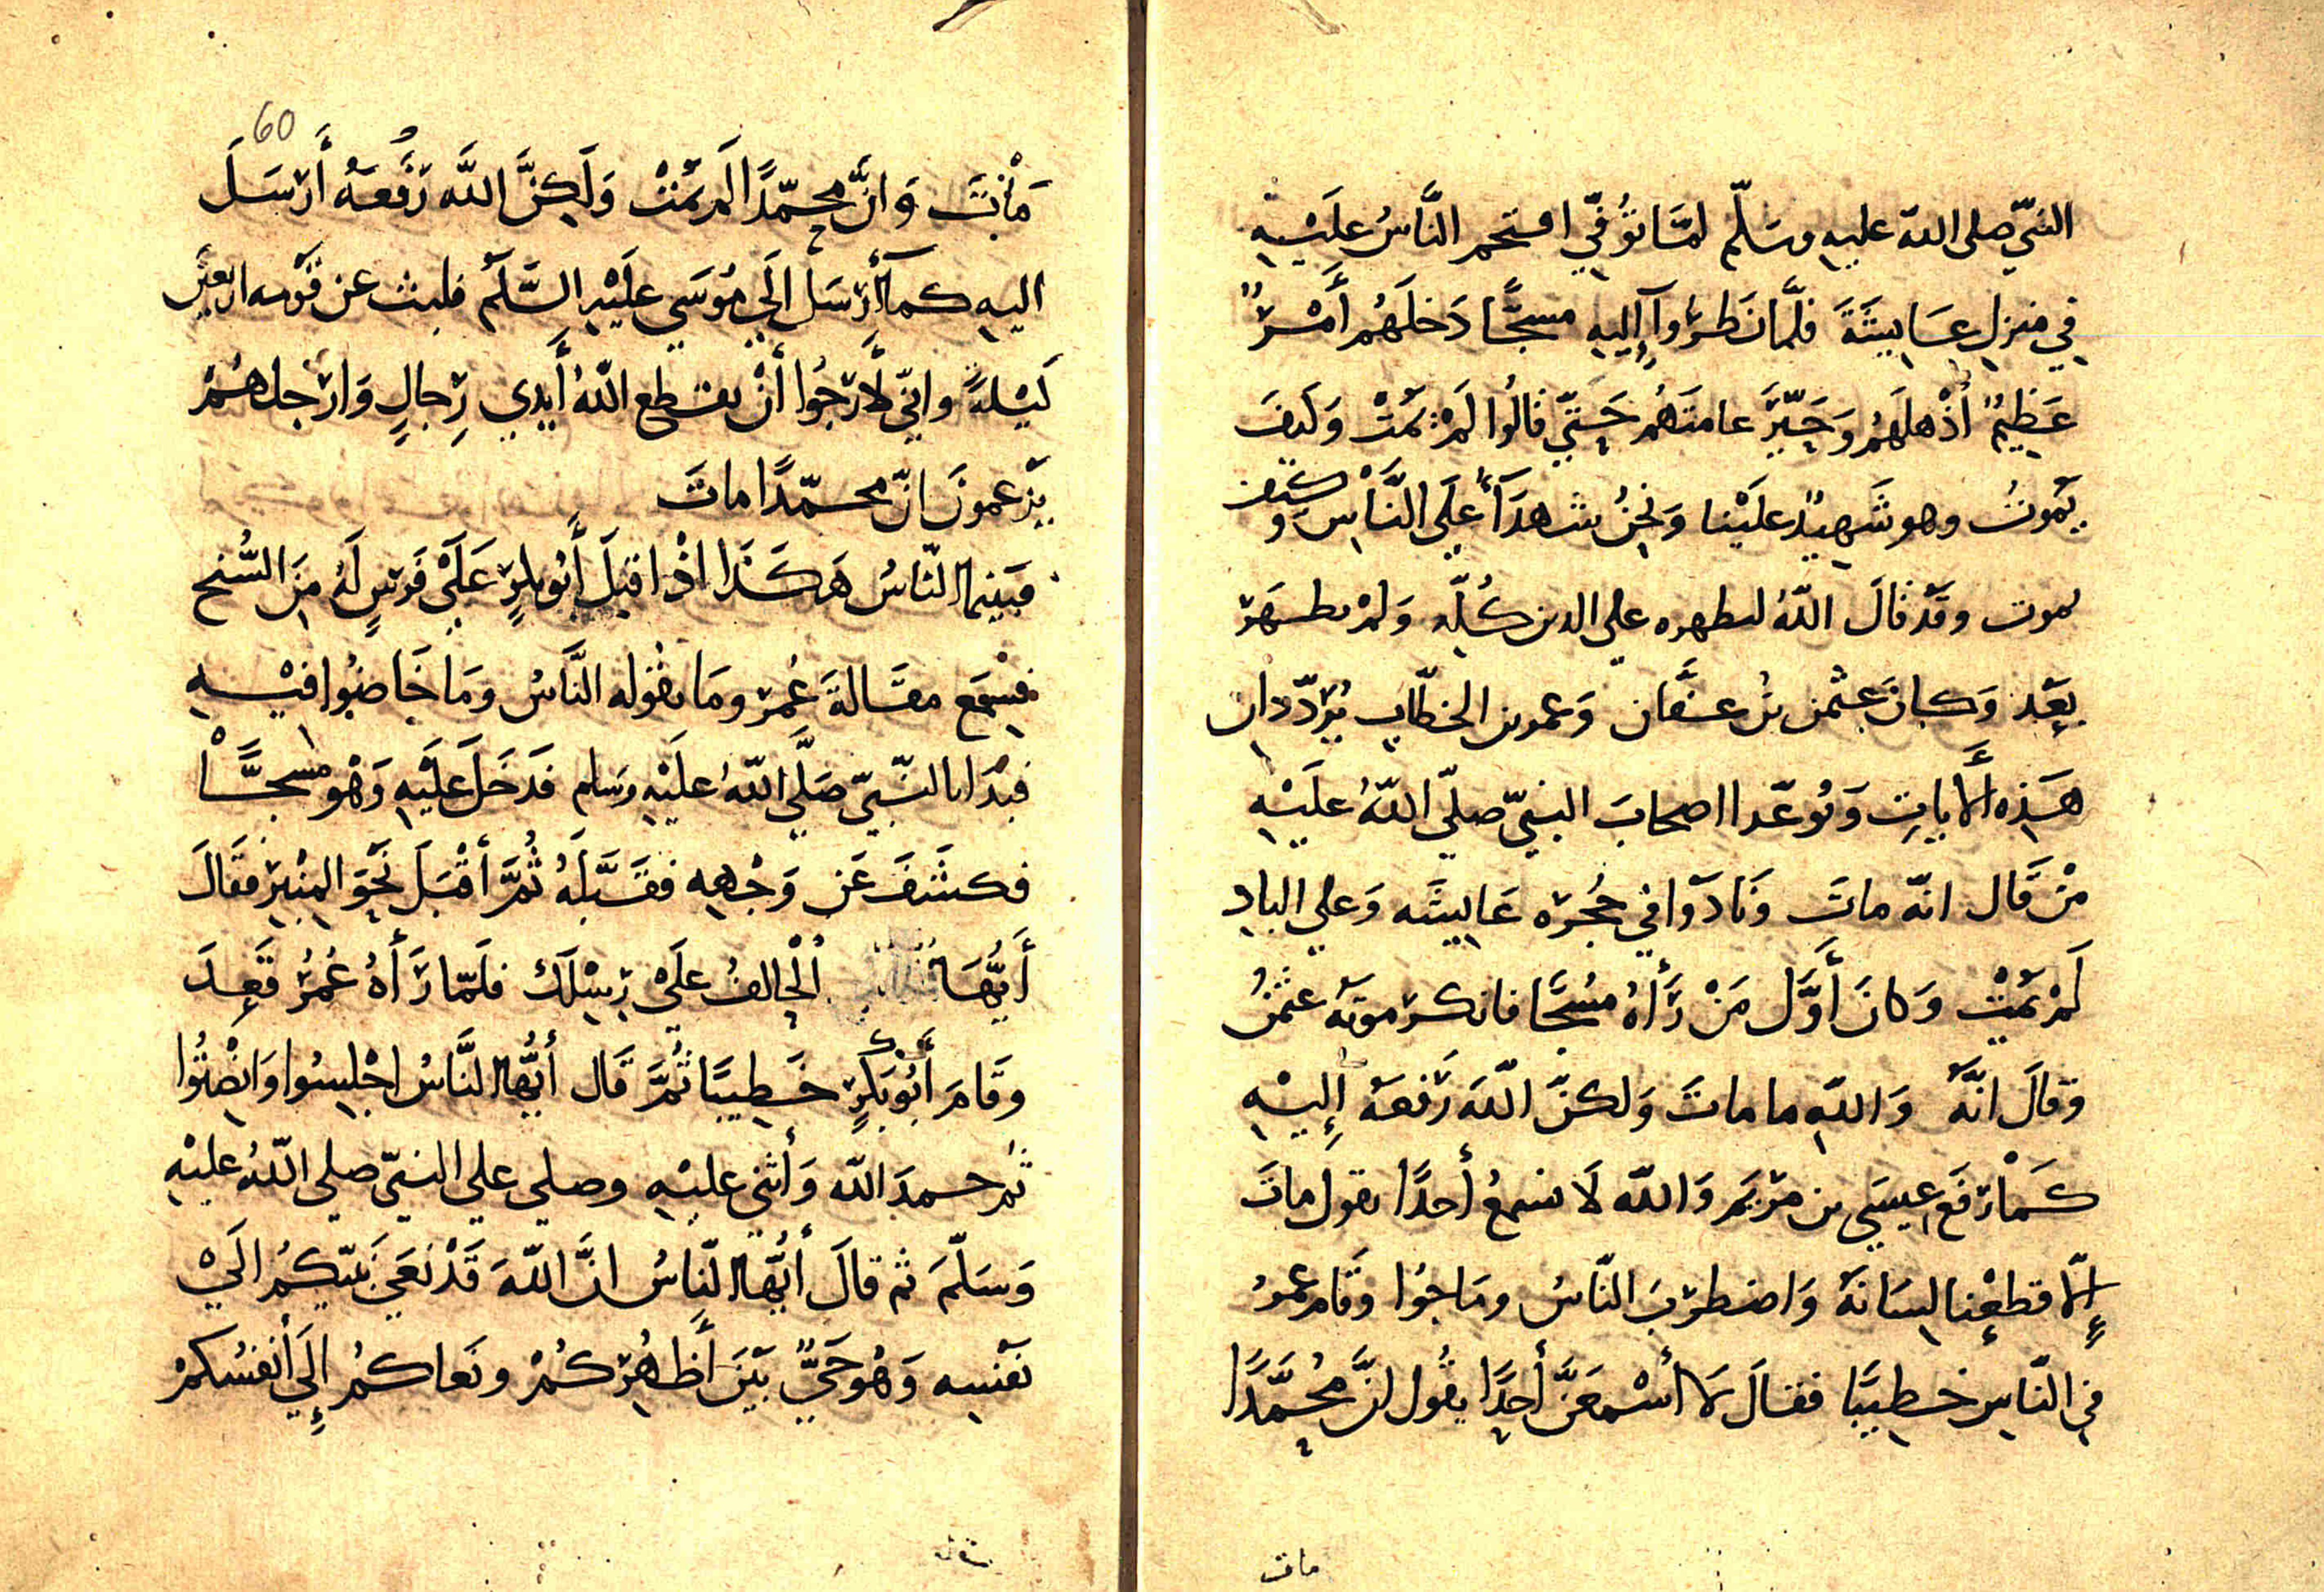 النبيّ صلى اللّه عليه وسَلّم لمَّا تُوُفّي اقتحم النَّاسُ عَلَيْهِ
في منزلِ عَايِشَةَ فلَمَّا نَظَرُوا إِلَيهِ مسجًّا دَخلَهُم أَمْرٌ
عَظِيمٌ أَذْهلَهُمْ وَحَيّرَ عامتَهُم حَتّي قالُوا لَمْ يَمُتْ وَكَيفَ
يَمُوتُ وهو شَهِيدٌ علَيْنا وَنَحْنُ شهدَآءُ عَلَى النَّاسِ وكيف
يموت وقَدْ قالَ اللّهُ ليظهره علي الدين كُلّه وَلمْ يظهَر
بَعْد وَكَانَ عثْمٰن بْن عفَّان وَعمر بن الخطّاب يُرَدّدان
هَذِه الأَيَاتِ وَتوعّدا اصحابَ النبيّ صلّي اللّهُ علَيْهِ
مَنْ قَال انّه ماتَ وَنَادَوا في حُجْرَه عَايِشَه وَعلي الباب
لَمْ يَمُتْ وَكانَ أَوَّلَ مَنْ رَأَاهُ مسُجًّا فانكر موتَهُ عثمٰنُ
وَقالَ انَّهُ وَاللّهِ ما ماتَ وَلكنّ اللّهَ رَفعَهُ إِليْهِ
كَمَا رَفَع عِيسَي بن مرْيَم وَاللّه لَا نسْمعُ أحدًا يقول ماتَ
إِلّا قطعْنا لِسَانَهُ وَاضطرَبَ النّاسُ ومَاجُوا وَقام عمرُ
في النّاسِ خطِيبًا فقالَ لَا أسْمعَنَّ أحدًا يقُول انَّ مُحمَّدًا
مات
60
مَاتَ وَانَّ محمّدًا لَم يَمُتْ وَلَكِنَّ اللَّه رَفَعهُ أَرْسَلَ
اليهِ كَمَا أَرْسَلَ إِلَي مُوسَي علَيْهِ السَّلَم فلبث عَن قَوْمه اربَعِينَ
لَيْلَةً وانّي لَأَرْجُوا أَنْ يقطع اللّهُ أَيْدي رِجالٍ وَارْجلهُمْ
يَزْعمونَ انّ محمّدًا ماتَ
فبَيْنما النّاسُ هَكَذَا اذْ اقبلَ أَبُو بكرٍ عَلَيْ فَرَسٍ لَهُ مِنَ السُّنحِ
فسَمعَ مقَالةَ عُمَرَ ومَا يقُوله النَّاسُ وَمَا خَاضُوا فيْهِ
فبَدَا بالنّبيّ صَلَّي اللّهُ علَيْهِ وَسَلم فَدَخَلَ عَلَيْهِ وَهْو مسجًّا
فكشَفَ عَن وَجْهِهِ فقَبَّلَهُ ثُمَّ أَقْبَلَ نَحْوَ المِنْبرِ فقَالَ
أَيُّهَا الْحَالِفُ عَلَيْ رِسْلِكَ فلَمّا رَأَاهُ عُمَرُ قَعدَ
وقَامَ أَبُو بَكْرٍ خَطِيبًا ثُمَّ قَال أيُّها النَّاسُ اجْلِسُوا وَانْصِتُوا
ثُم حمدَ اللّه وَأَثنَي عليْهِ وصلي علي النبيّ صلي اللّهُ عليْهِ
وَسَلّمَ ثم قالَ أَيُّها النّاسُ انَّ اللّهَ قَدْ نَعَي نَبيّكُم الَيْ
نَفْسِه وَهُو حَيٌّ بَيْنَ أَظهُرِكُمْ ونَعاكُم إِلَي أَنفسُكمْ